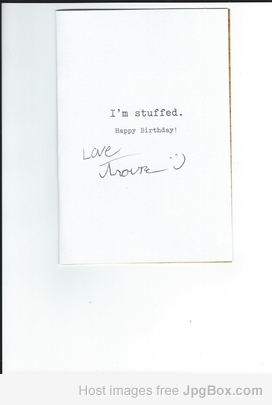 I'm stuffed.
Happy Birthday!
Love
:)
Host images free JpgBox.com